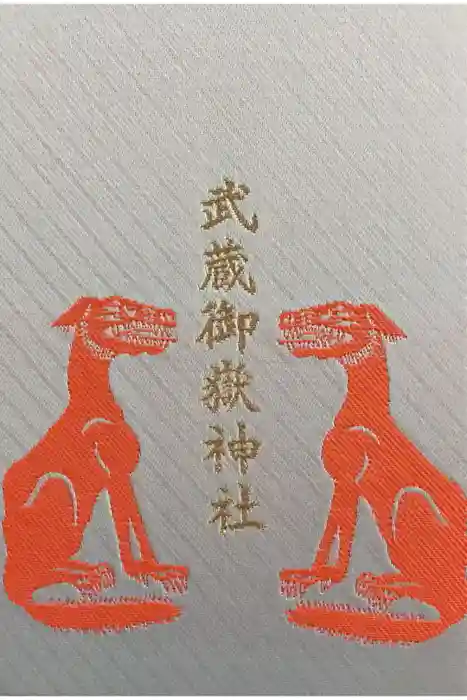 武蔵御嶽神社